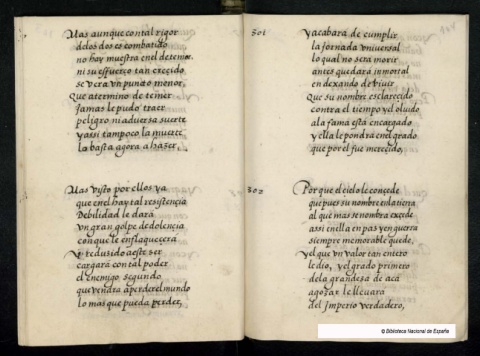 Mas aunque con tal rigor
delos dos es combatido
no hay muestra enel de temor
ni su esfuerço tan creçido
se vera un punto menor,
Que a termino de temer
Jamas le pudo traer
peligro ni adversa suerte
y assi tampoco la muerte
la basta agora a hazer.
Mas visto por ellos ya
que enel hay tal resistençia
Debilidad le dará
un gran golpe de dolençia
con que le enflaqueçera
Y reduzido a este ser
cargará con tal poder
el enemigo segundo
que vendra a perder el mundo
lo mas que pueda perder,
301
y acabara de cumplir
la jornada universal
lo qual no sera morir
antes quedara inmortal
en dexando de vivir
Que su nombre esclareçido
contra el tiempo y el olvido
a la fama esta encargado
y ella le pondra enel grado
que por el fue mereçido,
302
Porque el çielo le conçede
que pues su nombre en la tierra
al que mas se nombra excede
assi en ella en paz y en guerra
siempre memorable quede,
y el que un valor tan entero
le dio, y el grado primero
de la grandeza de acá
a gozar le llevara
del Imperio verdadero,
© Biblioteca Nacional de España